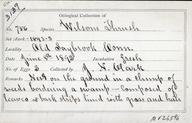 3/29
Oological Collection of
No. 786 Species Wilson Thrush
Set Mark 1893-3
Locality Old Saybrook Conn.
Date June 8th 1893 Incubation Fresh
No of Eggs 3 Collected by J. N. Clark
Remarks Nest on the ground in a clump of
weeds bordering a swamp - composed of
leaves & bark strips lined with grass and